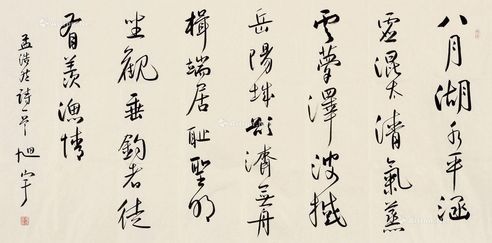 八月湖水平涵
虛混太清氣蒸
雲夢澤波撼
岳陽城欲濟無舟
楫端居耻聖明
坐觀垂鈎者徒
有羡漁情
孟浩然詩一首 旭宇